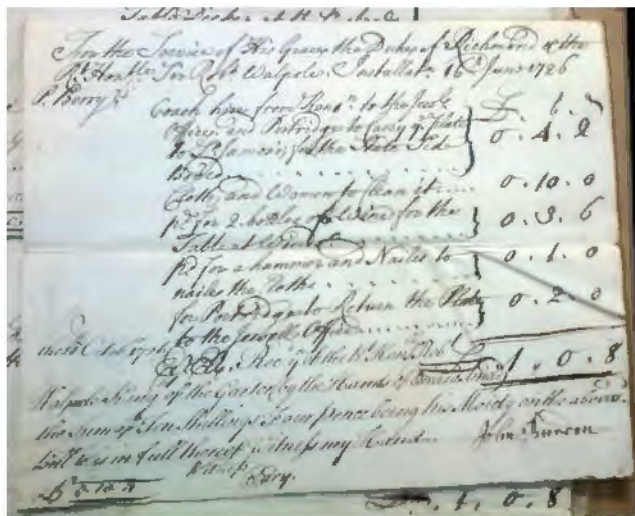 For the Service of His Grace the Duke of Richmond & the
Rt. Honble. Sr. Robt. Walpole's Installatn. 16 June 1726
P. Berry
Coach hire from Kensn. to the Jewle £. s.
Office and Porteridge to Carry ye Plate
to St. James's for the State 0. 4. 2
Cloths and Women to Clean it 0. 10. 0
pd. for 2 bottles of Wine for the
Table at 0. 3. 6
pd. for a hammer and Nailes to
naile the Cloths 0. 1. 0
for Porteridge to Return the Plate
to the Jewell Office 0. 2. 0
Octobr. 1726 Rec'd of the Rt. Honble. Robt. £ 1. 0. 8
Walpole Knight of the Garter by the Hands of
the sum of Ten Shillings & four pence being his Moiety on the above
bill & is in full thereof witness my Hand
John
Witness
1. 0. 8